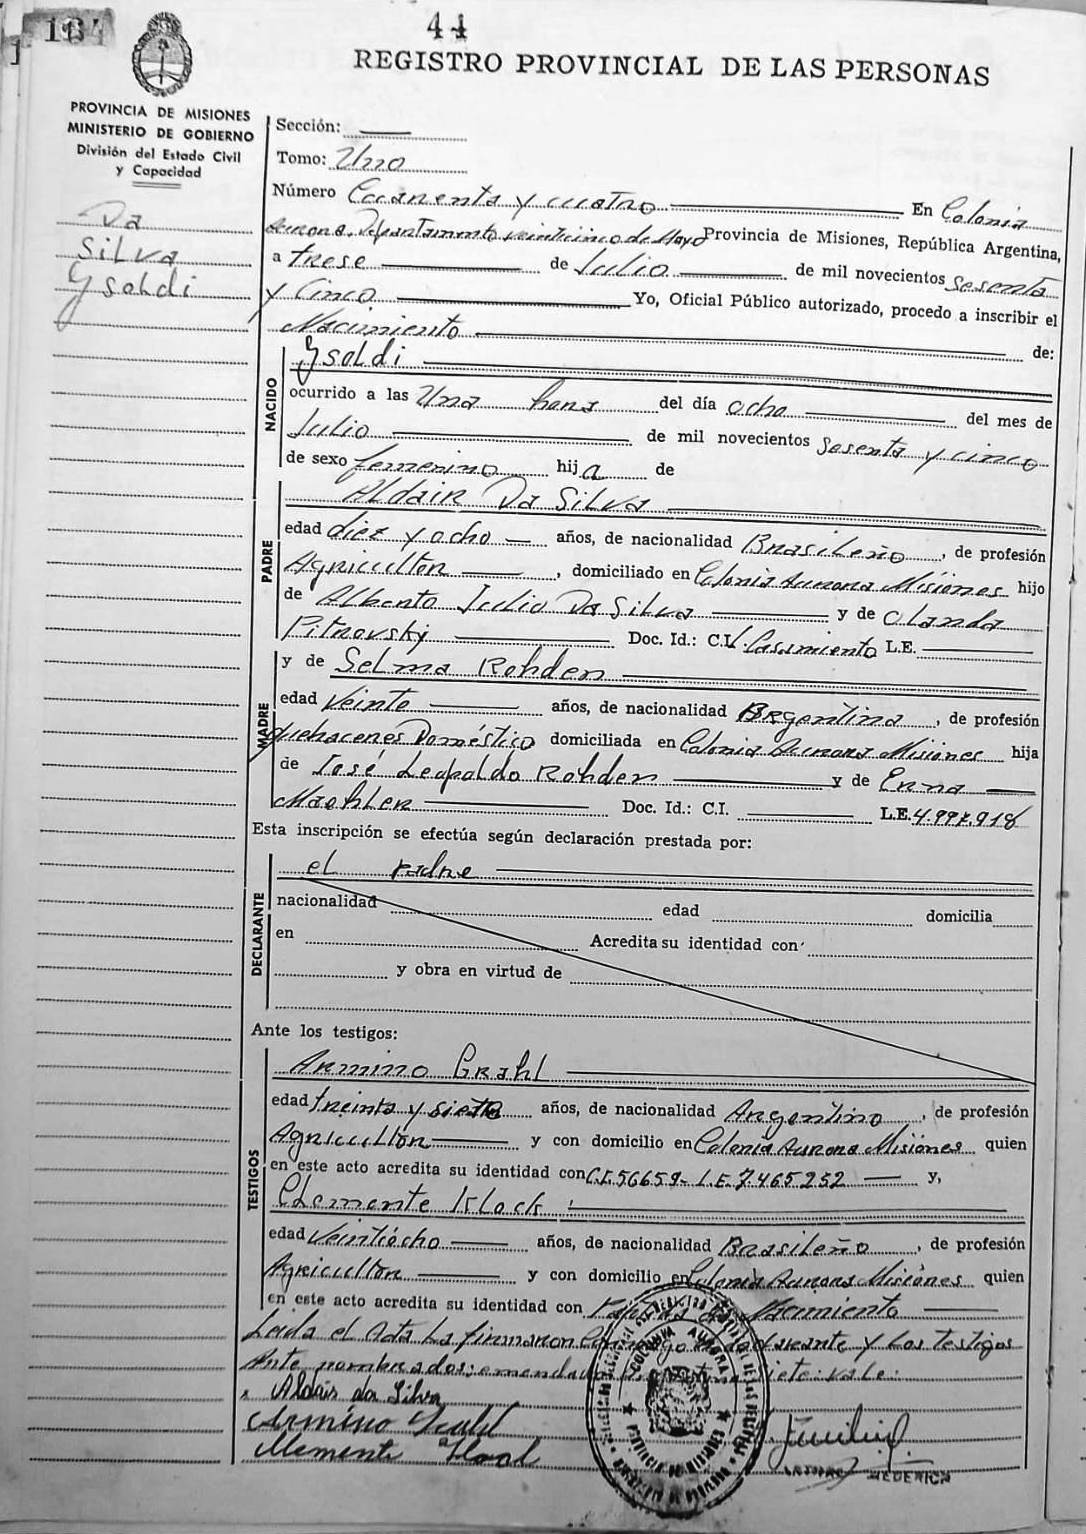 164
44
REGISTRO PROVINCIAL DE LAS PERSONAS
PROVINCIA DE MISIONES
MINISTERIO DE GOBIERNO
División del Estado Civil
y Capacidad
Da
Silva
Ysoldi
Sección:
Tomo: Uno
Número Cuarenta y cuatro En Colonia
Aurora. Departamento veinticinco de Mayo Provincia de Misiones, República Argentina,
a trese de Julio de mil novecientos sesenta
y Cinco Yo, Oficial Público autorizado, procedo a inscribir el
Nacimiento de:
NACIDO
Ysoldi
ocurrido a las Una hora del día ocho del mes de
Julio de mil novecientos sesenta y cinco
de sexo femenino hija de
PADRE
Aldair Da Silva
edad diez y ocho años, de nacionalidad Brasileño, de profesión
Agricultor, domiciliado en Colonia Aurora Misiones hijo
de Alberto Julio Da Silva y de Olanda
Pitrovsky Doc. Id.: C.I. L. Casamiento L.E.
MADRE
y de Selma Rohden
edad Veinte años, de nacionalidad Argentina, de profesión
quehaceres Doméstico domiciliada en Colonia Aurora Misiones hija
de José Leopoldo Rohden y de Erna
Maehler Doc. Id.: C.I. L.E. 4.997.918
Esta inscripción se efectúa según declaración prestada por:
DECLARANTE
el Padre
nacionalidad edad domicilia
en Acredita su identidad con
y obra en virtud de
Ante los testigos:
TESTIGOS
Armino Grahl
edad treinta y siete años, de nacionalidad Argentino, de profesión
Agricultor y con domicilio en Colonia Aurora Misiones quien
en este acto acredita su identidad con C.I. 56659- L.E. 7465252 y,
Clemente Klock
edad Veintiocho años, de nacionalidad Brasileño, de profesión
Agricultor y con domicilio en Colonia Aurora Misiones quien
en este acto acredita su identidad con Nacimiento
Leida el Acta La firmaron y Los testigos
Ante nombrados: siete: vale:
Aldair da Silva
Armino Grahl
COLONIA AURORA
PROVINCIA DE MISIONES